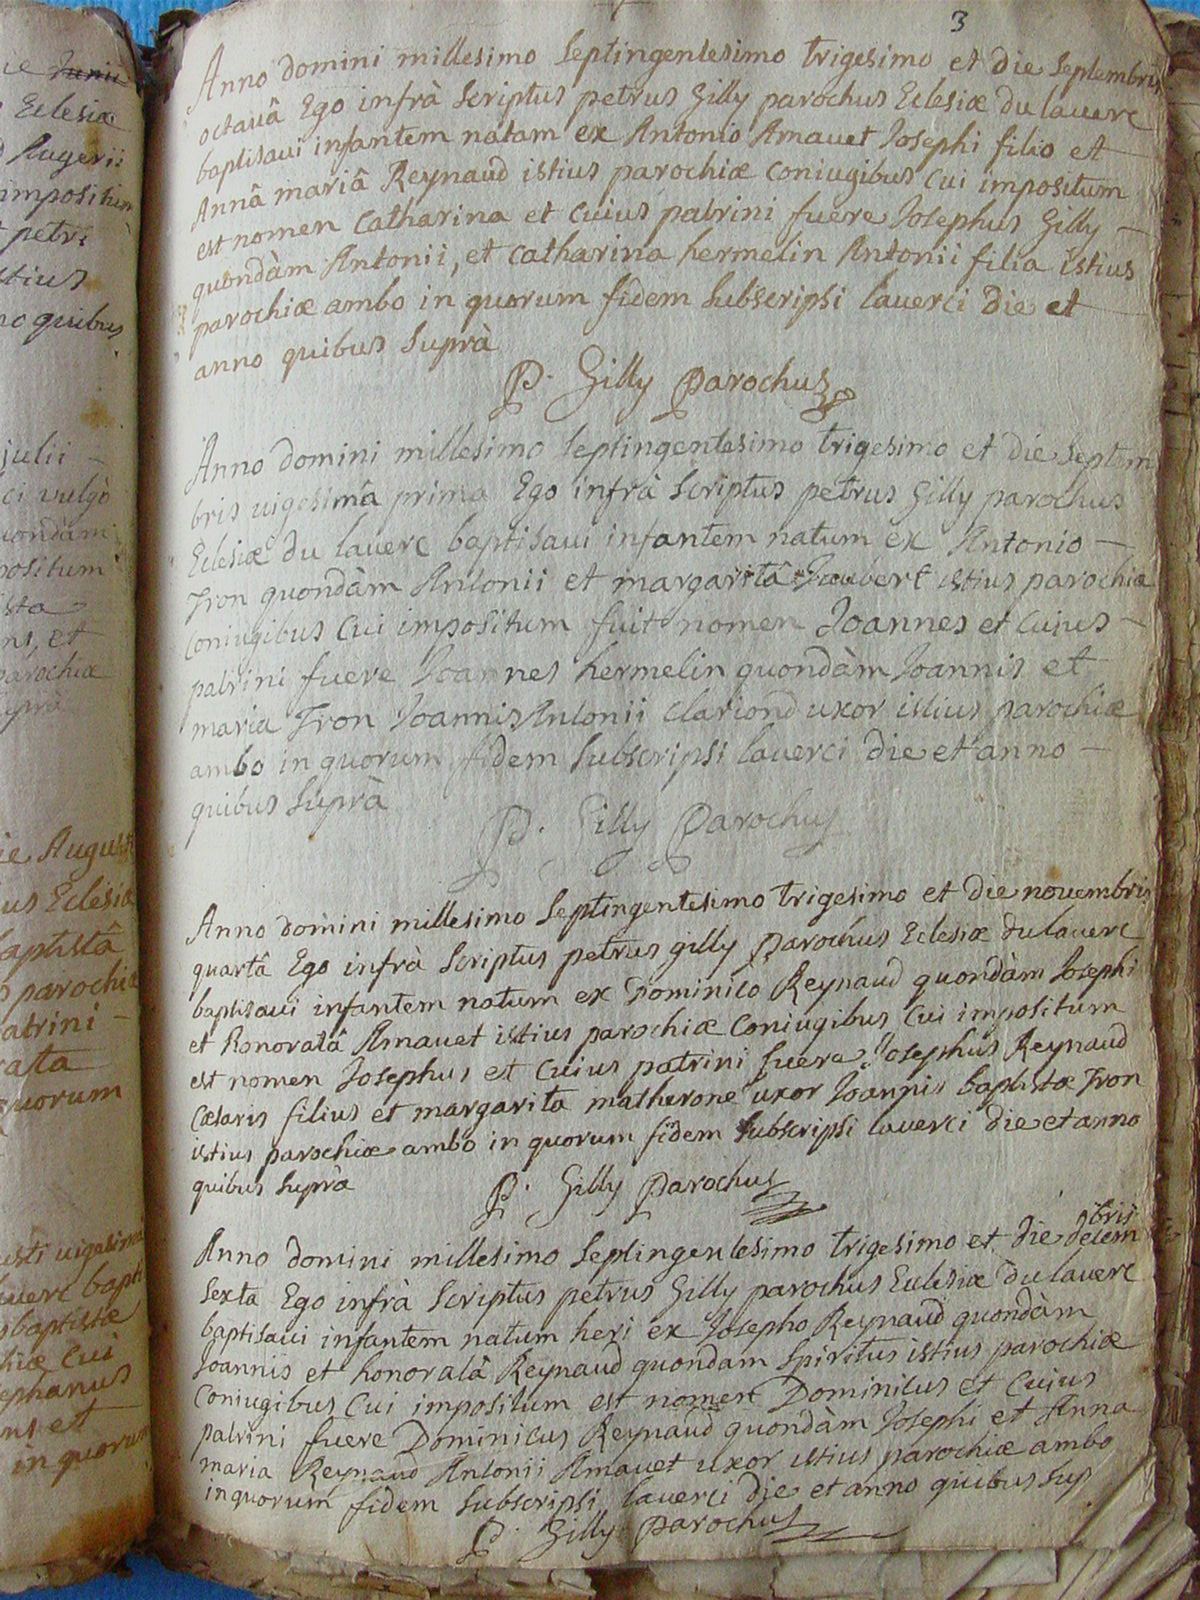 ie Junii
Eclesiæ
Augerii
impositum
petri
istius
no quibus
julii
ci vulgò
uondàm
positum
ista
ns, et
parochiæ
suprà
ie Augusti
ius Eclesiæ
baptistâ
parochiæ
patrini
rata
quorum
usti vigesima
laverc bapti
baptistæ
chiæ cui
ephanus
ns et
in quorum
3
Anno domini millesimo septingentesimo trigesimo et die septembris
octavâ Ego infrà scriptus petrus Gilly parochus Eclesiæ du laverc
baptisavi infantem natam ex Antonio Amavet Josephi filio et
Annâ mariâ Reynaud istius parochiæ coniugibus cui impositum
est nomen Catharina et cuius patrini fuere Josephus Gilly
quondàm Antonii, et Catharina hermelin Antonii filia istius
parochiæ ambo in quorum fidem subscripsi laverci die et
anno quibus suprà
P. Gilly Parochus
Anno domini millesimo septingentesimo trigesimo et die septem
bris vigesimâ prima Ego infrà scriptus petrus Gilly parochus
Eclesiæ du laverc baptisavi infantem natum ex Antonio
Tron quondàm Antonii et margaritâ Jaubert istius parochiæ
coniugibus cui impositum fuit nomen Joannes et cuius
patrini fuere Joannes hermelin quondàm Joannis et
maria Tron Joannis Antonii clariond uxor istius parochiæ
ambo in quorum fidem subscripsi laverci die et anno
quibus suprà
P. Gilly Parochus
Anno domini millesimo septingentesimo trigesimo et die novembris
quartâ Ego infrà scriptus petrus gilly parochus Eclesiæ du laverc
baptisavi infantem natum ex Dominico Reynaud quondàm Josephi
et honoratâ Amavet istius parochiæ coniugibus cui impositum
est nomen Josephus et cuius patrini fuere Josephus Reynaud
Cæsaris filius et margarita matherone uxor Joannis baptistæ Tron
istius parochiæ ambo in quorum fidem subscripsi laverci die et anno
quibus suprà
P. Gilly Parochus
bris
Anno domini millesimo septingentesimo trigesimo et die decem
sexta Ego infrà scriptus petrus Gilly parochus Ecclesiæ du laverc
baptisavi infantem natum heri ex Josepho Reynaud quondàm
Joannis et honoratâ Reynaud quondam Spiritus istius parochiæ
coniugibus cui impositum est nomen Dominicus et cuius
patrini fuere Dominicus Reynaud quondàm Josephi et Anna
maria Reynaud Antonii Amavet uxor istius parochiæ ambo
in quorum fidem subscripsi laverci die et anno quibus sup
P. Gilly Parochus